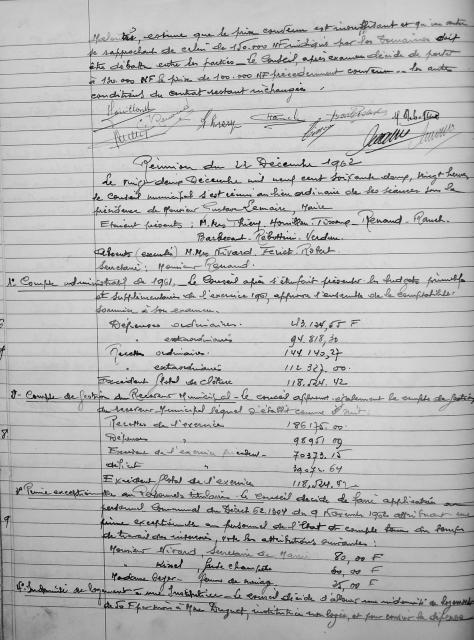 estime que le prix convenu est insuffisant et qu'un autre
se rapprochant de celui de 150.000 NF indiqué par les Domaines doit
être débattu entre les parties. Le Conseil après examen décide de porter
à 130.000 NF le prix de 100.000 NF précédemment convenu - les autres
conditions du contrat restant inchangées.
Réunion du 22 Décembre 1962
Le vingt deux Décembre mil neuf cent soixante deux, vingt heures,
le Conseil municipal s'est réuni au lieu ordinaire de ses séances sous la
présidence de Monsieur Gustave Lemaire, Maire
Etaient présents : M.Mrs Thiéry, Renaud
Absents (excusés) M.Mrs Nivard, Robert
Secrétaire : Monsieur Renaud.
1° Compte administratif de 1961 - Le Conseil après s'être fait présenter les budgets primitifs
et supplémentaire de l'exercice 1961, approuve l'ensemble de la comptabilité
soumise à son examen.
Dépenses ordinaires. F
" extraordinaires 94.818,30
Recettes ordinaires 144.140,27
" extraordinaires 112.327.00
Excédent global de clôture 118.524.42
2° - Compte de Gestion du Receveur Municipal - Le Conseil approuve également le compte de gestion
du receveur Municipal lequel s'établit comme suit
Recettes de l'exercice 186175.00
Dépenses " 98951 09
Excédent de l'exercice 70373.15
déficit " 39072.64
Excédent global de l'exercice
3° Prime exceptionnelle au Personnel titulaire - Le Conseil décide de faire application au
personnel Communal du Décret 62.1304 du 9 Novembre 1962 attribuant une
prime exceptionnelle au personnel de l'Etat et compte tenu du temps
de travail des intéressés, vote les attributions suivantes :
Monsieur Nivard, Secrétaire de Mairie 80,00 F
garde champêtre 60,00 F
Madame femme de ménage 25,00 F
4° Indemnité de logement à une Institutrice - Le Conseil décide d'allouer une indemnité de logement
de 50 F par mois à Mme institutrice non logée, et pour couvrir la dépense